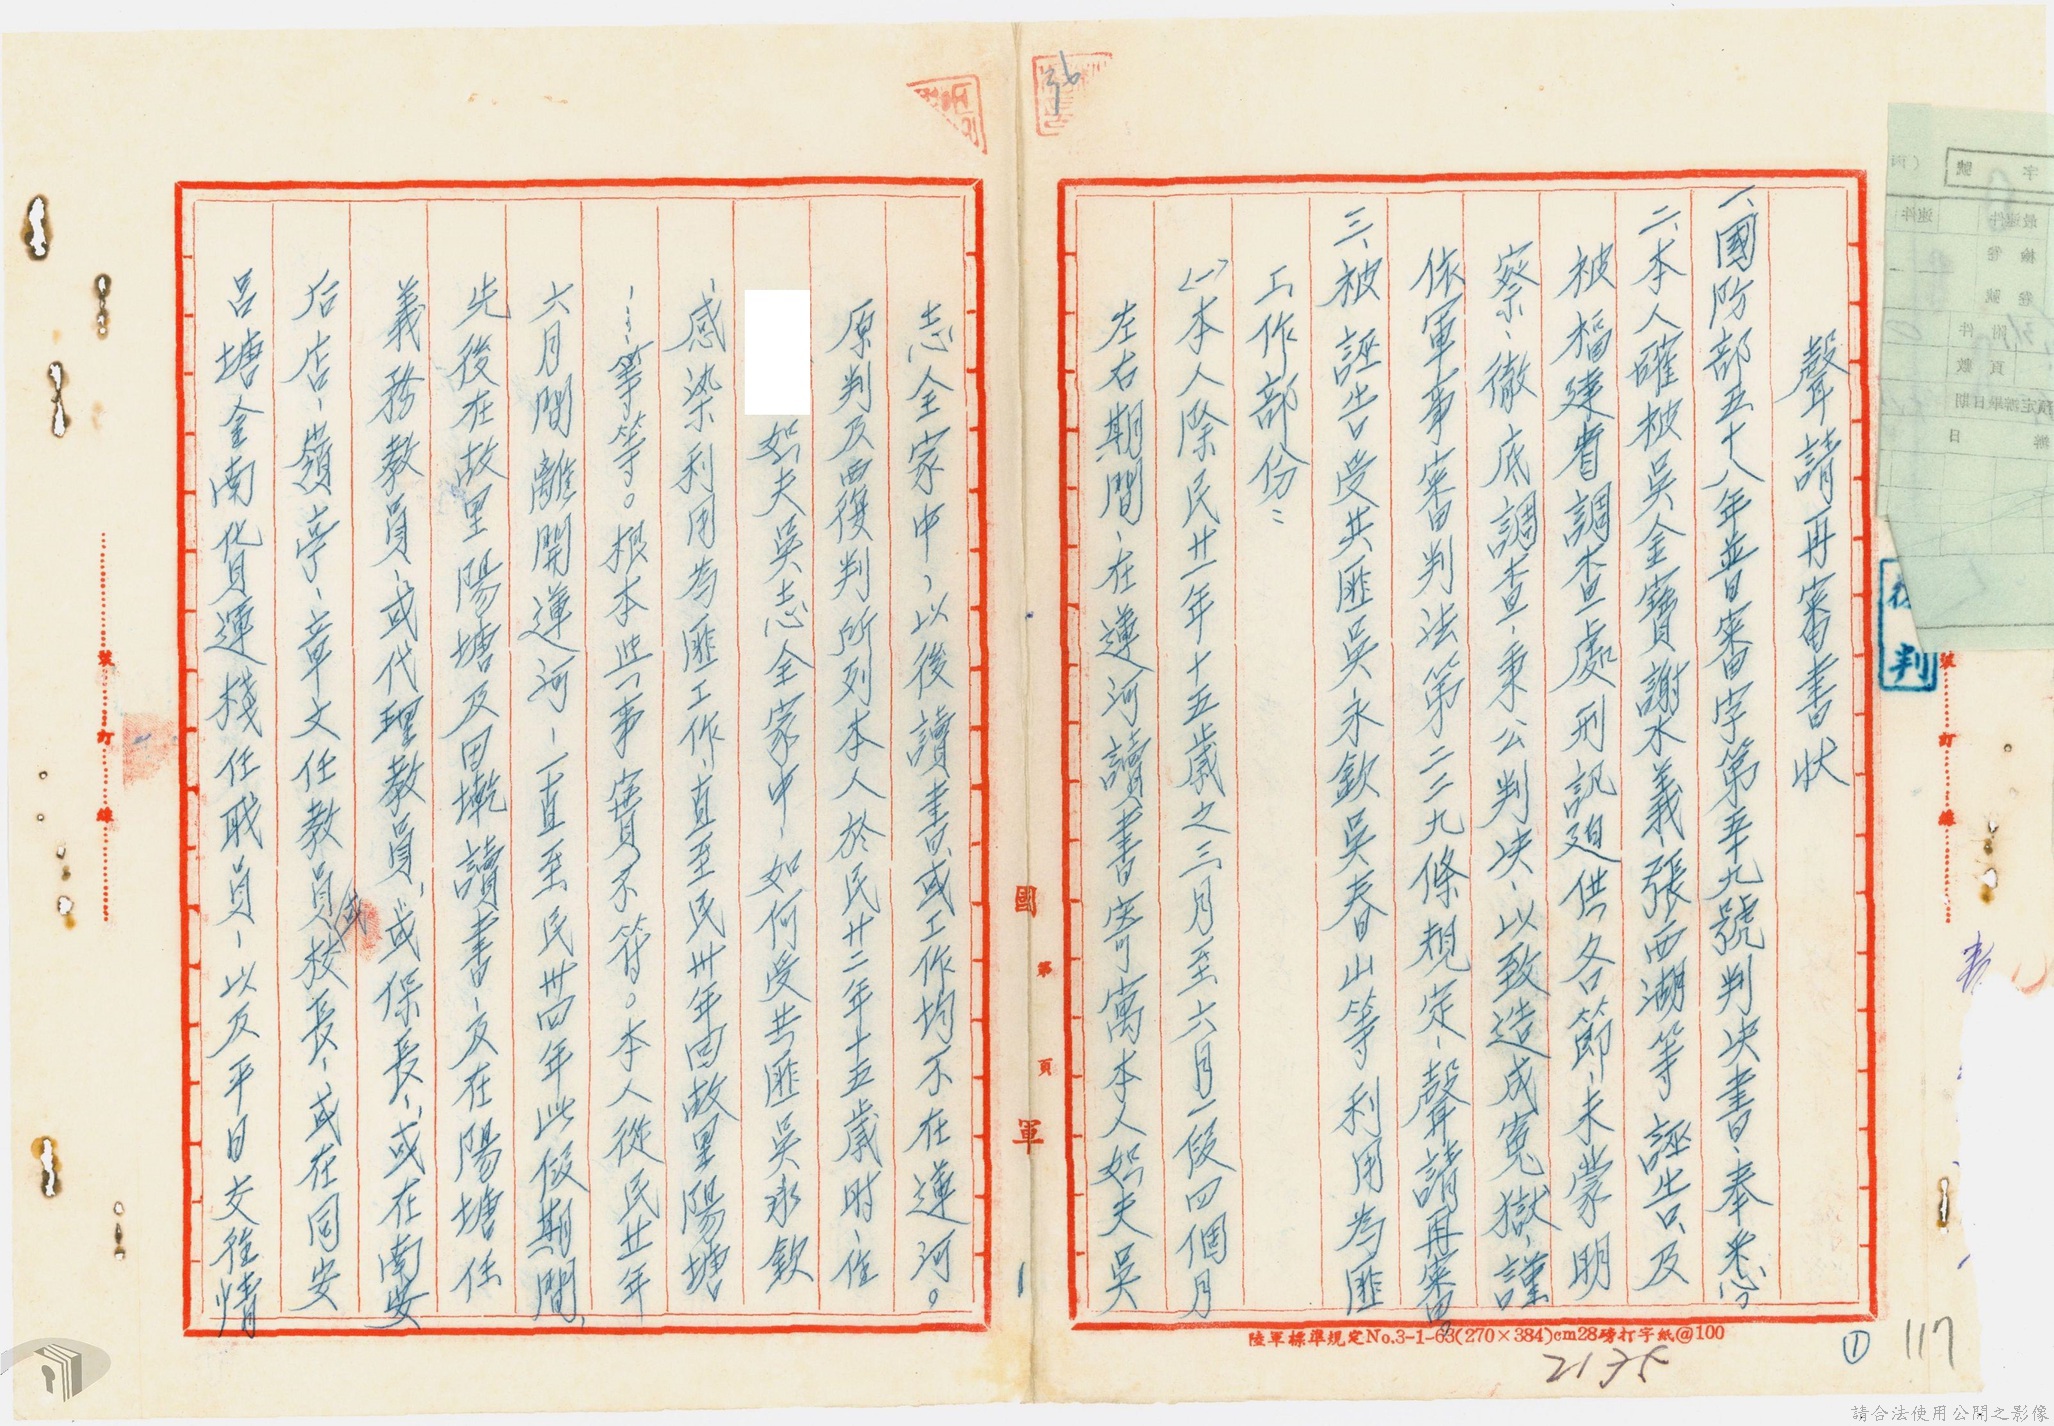 聲請再審書狀
一、國防部五十八年普審字第壱九號判決書、奉悉
二、本人確被吳金寶謝水義、張西湖等誣告、及
被福建省調查處刑訊迫供各節、未蒙明
察、徹底調查、秉公判決、以致造成冤獄、謹
依軍事審判法第二二九條規定、聲請再審。
三、被誣告受共匪吳永欽吳春山等利用為匪
工作部份：
(一)本人除民廿一年十五歲之三月至六月一段四個月
左右期間、在蓮河讀書寄寓本人姑夫吳
志全家中、以後讀書或工作均不在蓮河。
原判及覆判所列本人於民廿二年十五歲時、住
姑夫吳志全家中、如何受共匪吳永欽
感染利用為匪工作、直至民卅年回故里陽塘
……等等。根本與事實不符。本人從民廿一年
六月間離開蓮河、一直至民卅四年此段期間、
先後在故里陽塘及田墘讀書、及在陽塘任
義務教員、或代理教員、或保長、或在南安
后店、嶺亭、章文任教員或校長、或在同安
呂塘金南貨運棧任職員、以及平日交往情
國 第 頁 軍
陸軍標準規定No.3-1-63(270×384)cm28磅打字紙@100
2135
①
117
裝 訂 線
裝 訂 線
字 號
最速件
速件
檢卷
卷號
附件
頁數
預定辦畢日期
日
判
36
請合法使用公開之影像